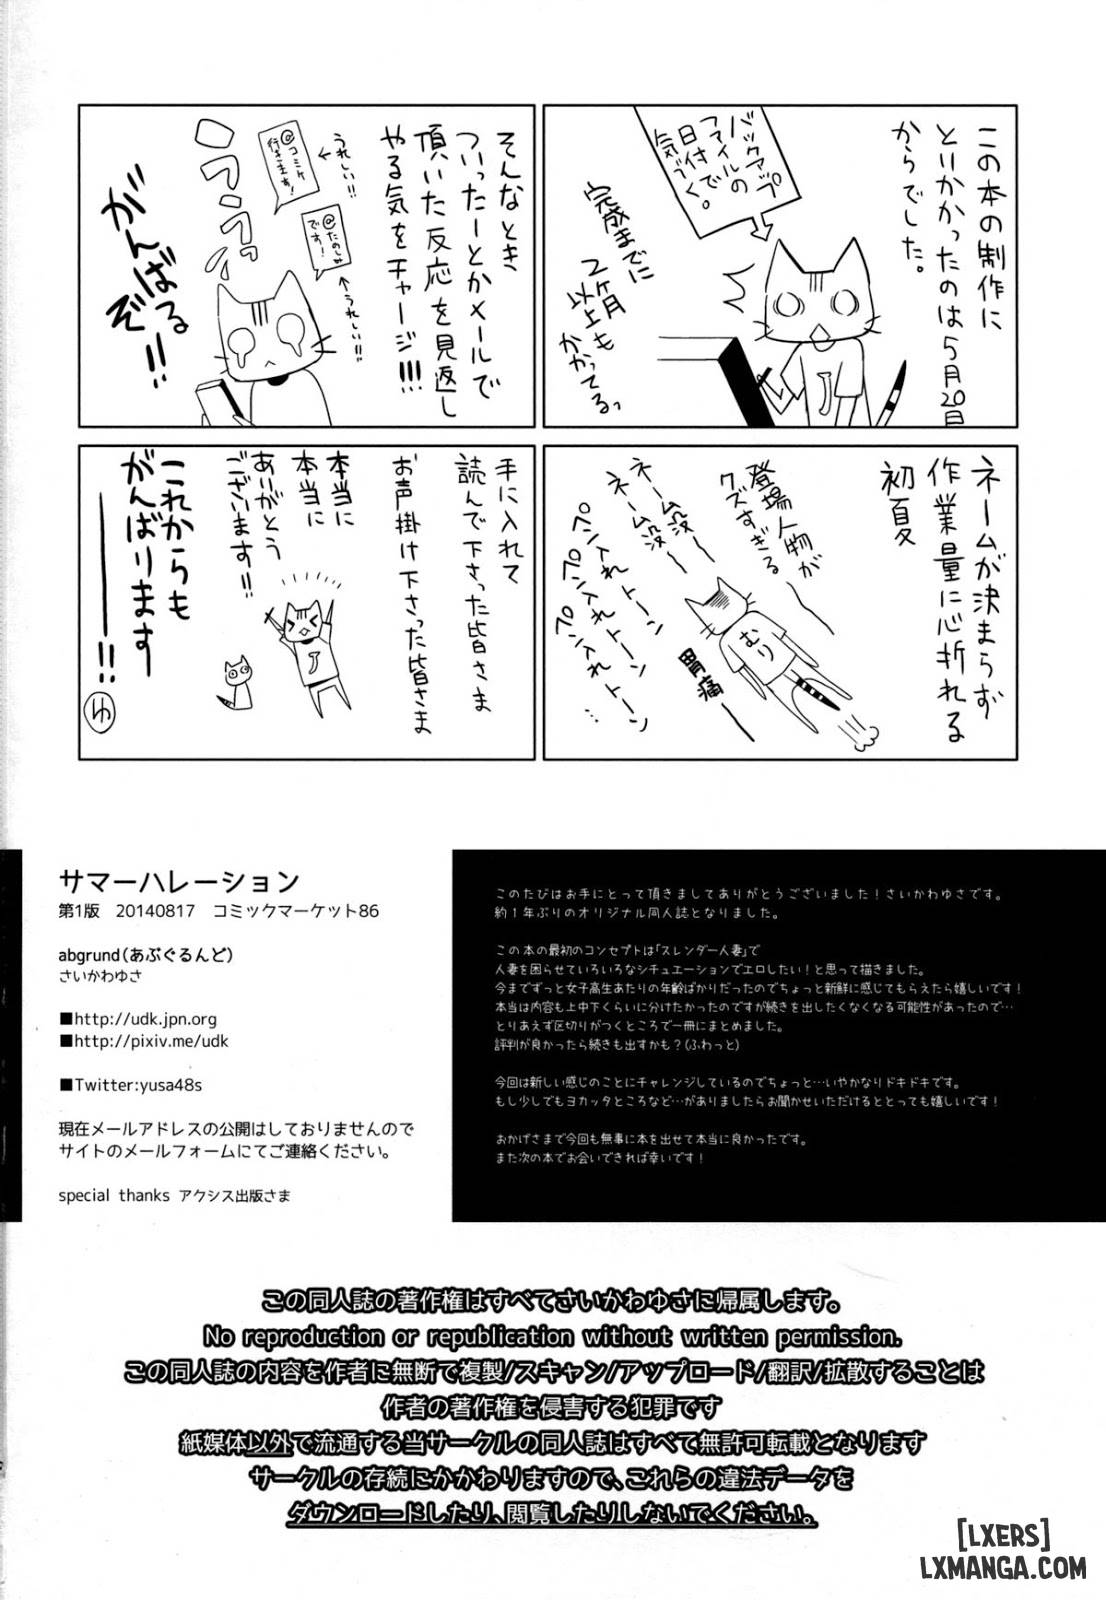 この本の制作に
とりかかったのは5月20日
からでした。
バックアップ
ファイルの
日付で
気づく。
完成までに
2ヶ月
以上も
かかってるっ
そんなとき
ついったーとかメールで
頂いた反応を見返し
やる気をチャージ!!!
うれしい!!
@コミケ
行きます!
@たのしみ
です!
うれしい!!
がんばる
ぞ!!
ネームが決まらず
作業量に心折れる
初夏
登場人物が
クズすぎる
ネーム没〜
ネーム没〜
ペン入れトーン
ペン入れトーン
ペン入れトーン…
むり
胃痛
手に入れて
読んで下さった皆さま
お声掛け下さった皆さま
本当に
本当に
ありがとう
ございます!!
これからも
がんばります
――!!
ゆ
サマーハレーション
第1版 20140817 コミックマーケット86
abgrund(あぶぐるんど)
さいかわゆさ
■http://udk.jpn.org
■http://pixiv.me/udk
■Twitter:yusa48s
現在メールアドレスの公開はしておりませんので
サイトのメールフォームにてご連絡ください。
special thanks アクシス出版さま
このたびはお手にとって頂きましてありがとうございました!さいかわゆさです。
約1年ぶりのオリジナル同人誌となりました。
この本の最初のコンセプトは「スレンダー人妻」で
人妻を困らせていろいろなシチュエーションでエロしたい!と思って描きました。
今までずっと女子高生あたりの年齢ばかりだったのでちょっと新鮮に感じてもらえたら嬉しいです!
本当は内容も上中下くらいに分けたかったのですが続きを出したくなくなる可能性があったので…
とりあえず区切りがつくところで一冊にまとめました。
評判が良かったら続きも出すかも?(ふわっと)
今回は新しい感じのことにチャレンジしているのでちょっと…いやかなりドキドキです。
もし少しでもヨカッタところなど…がありましたらお聞かせいただけるととっても嬉しいです!
おかげさまで今回も無事に本を出せて本当に良かったです。
また次の本でお会いできれば幸いです!
この同人誌の著作権はすべてさいかわゆさに帰属します。
No reproduction or republication without written permission.
この同人誌の内容を作者に無断で複製/スキャン/アップロード/翻訳/拡散することは
作者の著作権を侵害する犯罪です
紙媒体以外で流通する当サークルの同人誌はすべて無許可転載となります
サークルの存続にかかわりますので、これらの違法データを
ダウンロードしたり、閲覧したりしないでください。
[LXERS]
LXMANGA.COM